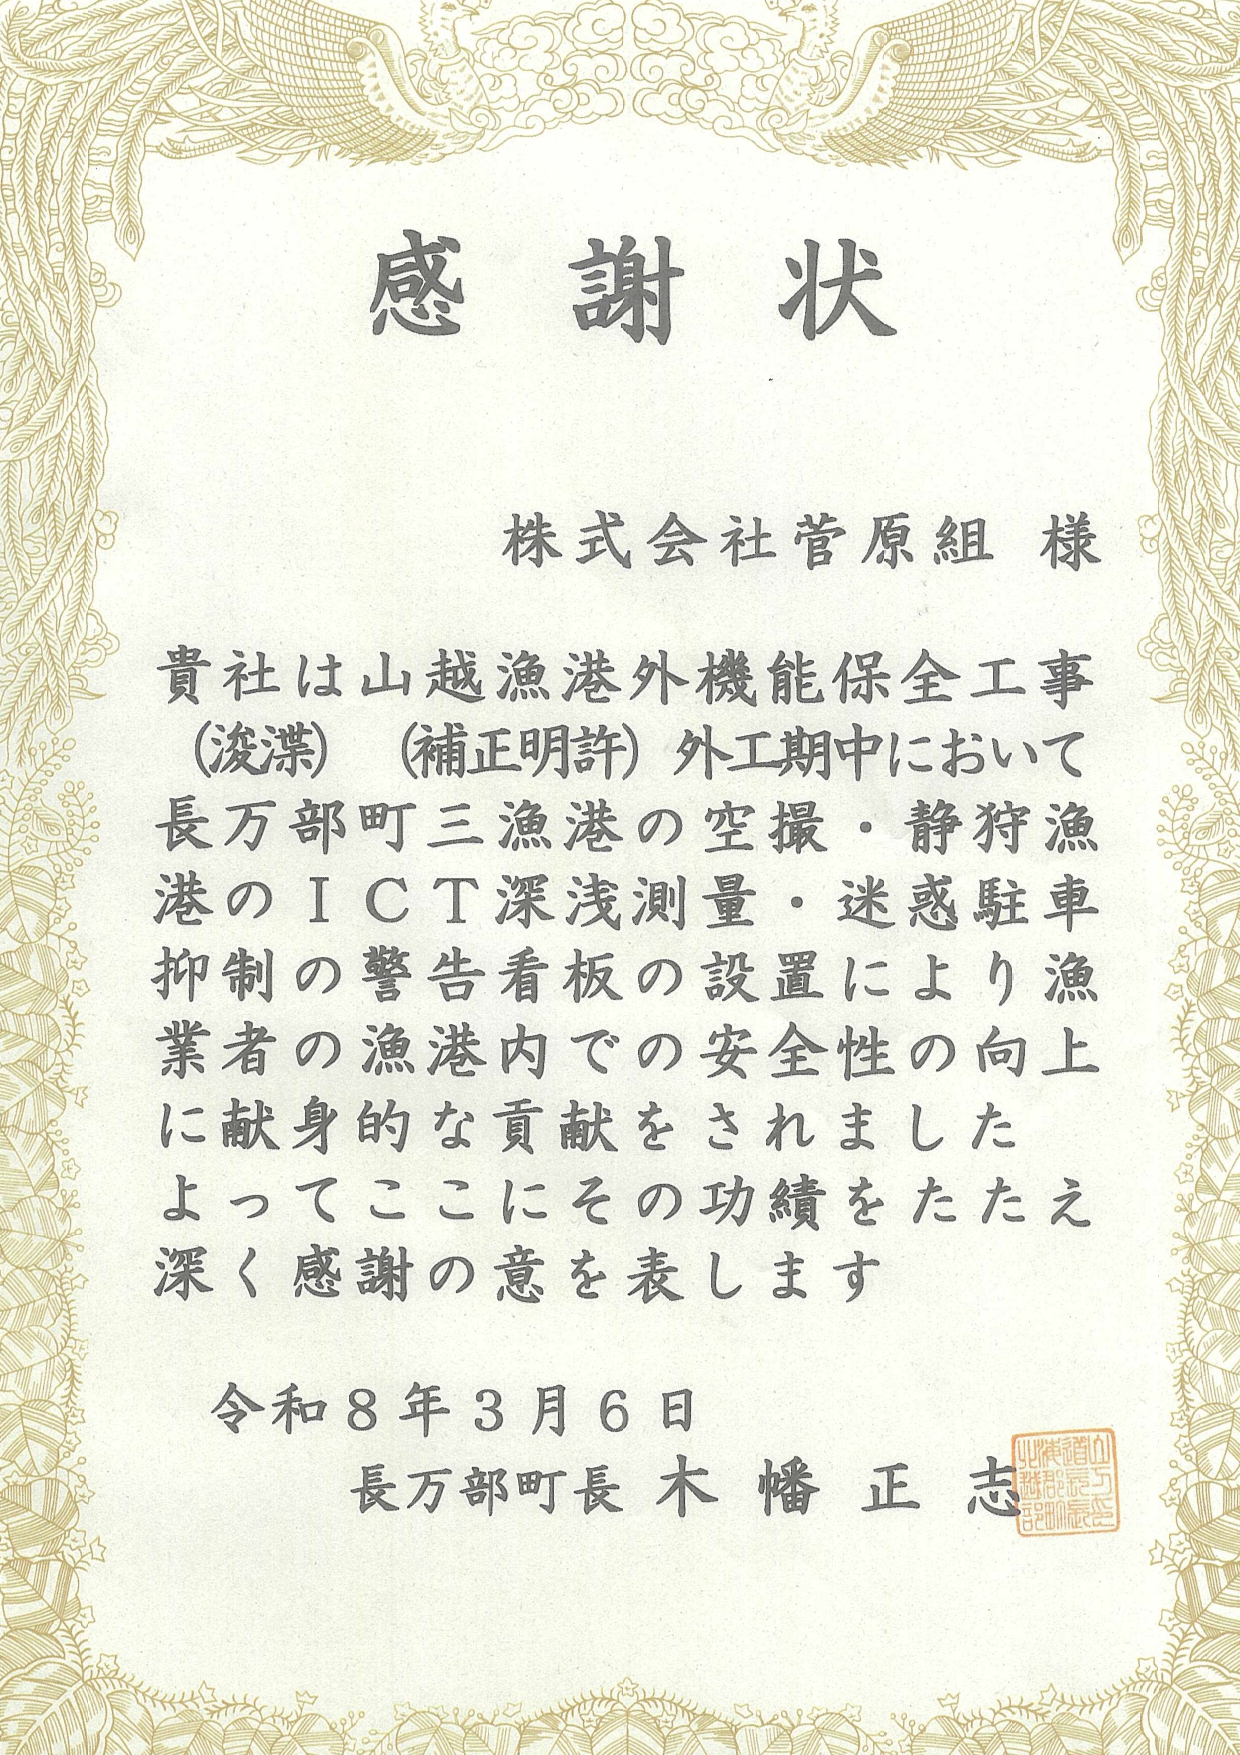 感謝状
株式会社菅原組 様
貴社は山越漁港外機能保全工事
(浚渫) (補正明許)外工期中において
長万部町三漁港の空撮・静狩漁
港のICT深浅測量・迷惑駐車
抑制の警告看板の設置により漁
業者の漁港内での安全性の向上
に献身的な貢献をされました
よってここにその功績をたたえ
深く感謝の意を表します
令和8年3月6日
長万部町長 木幡正志